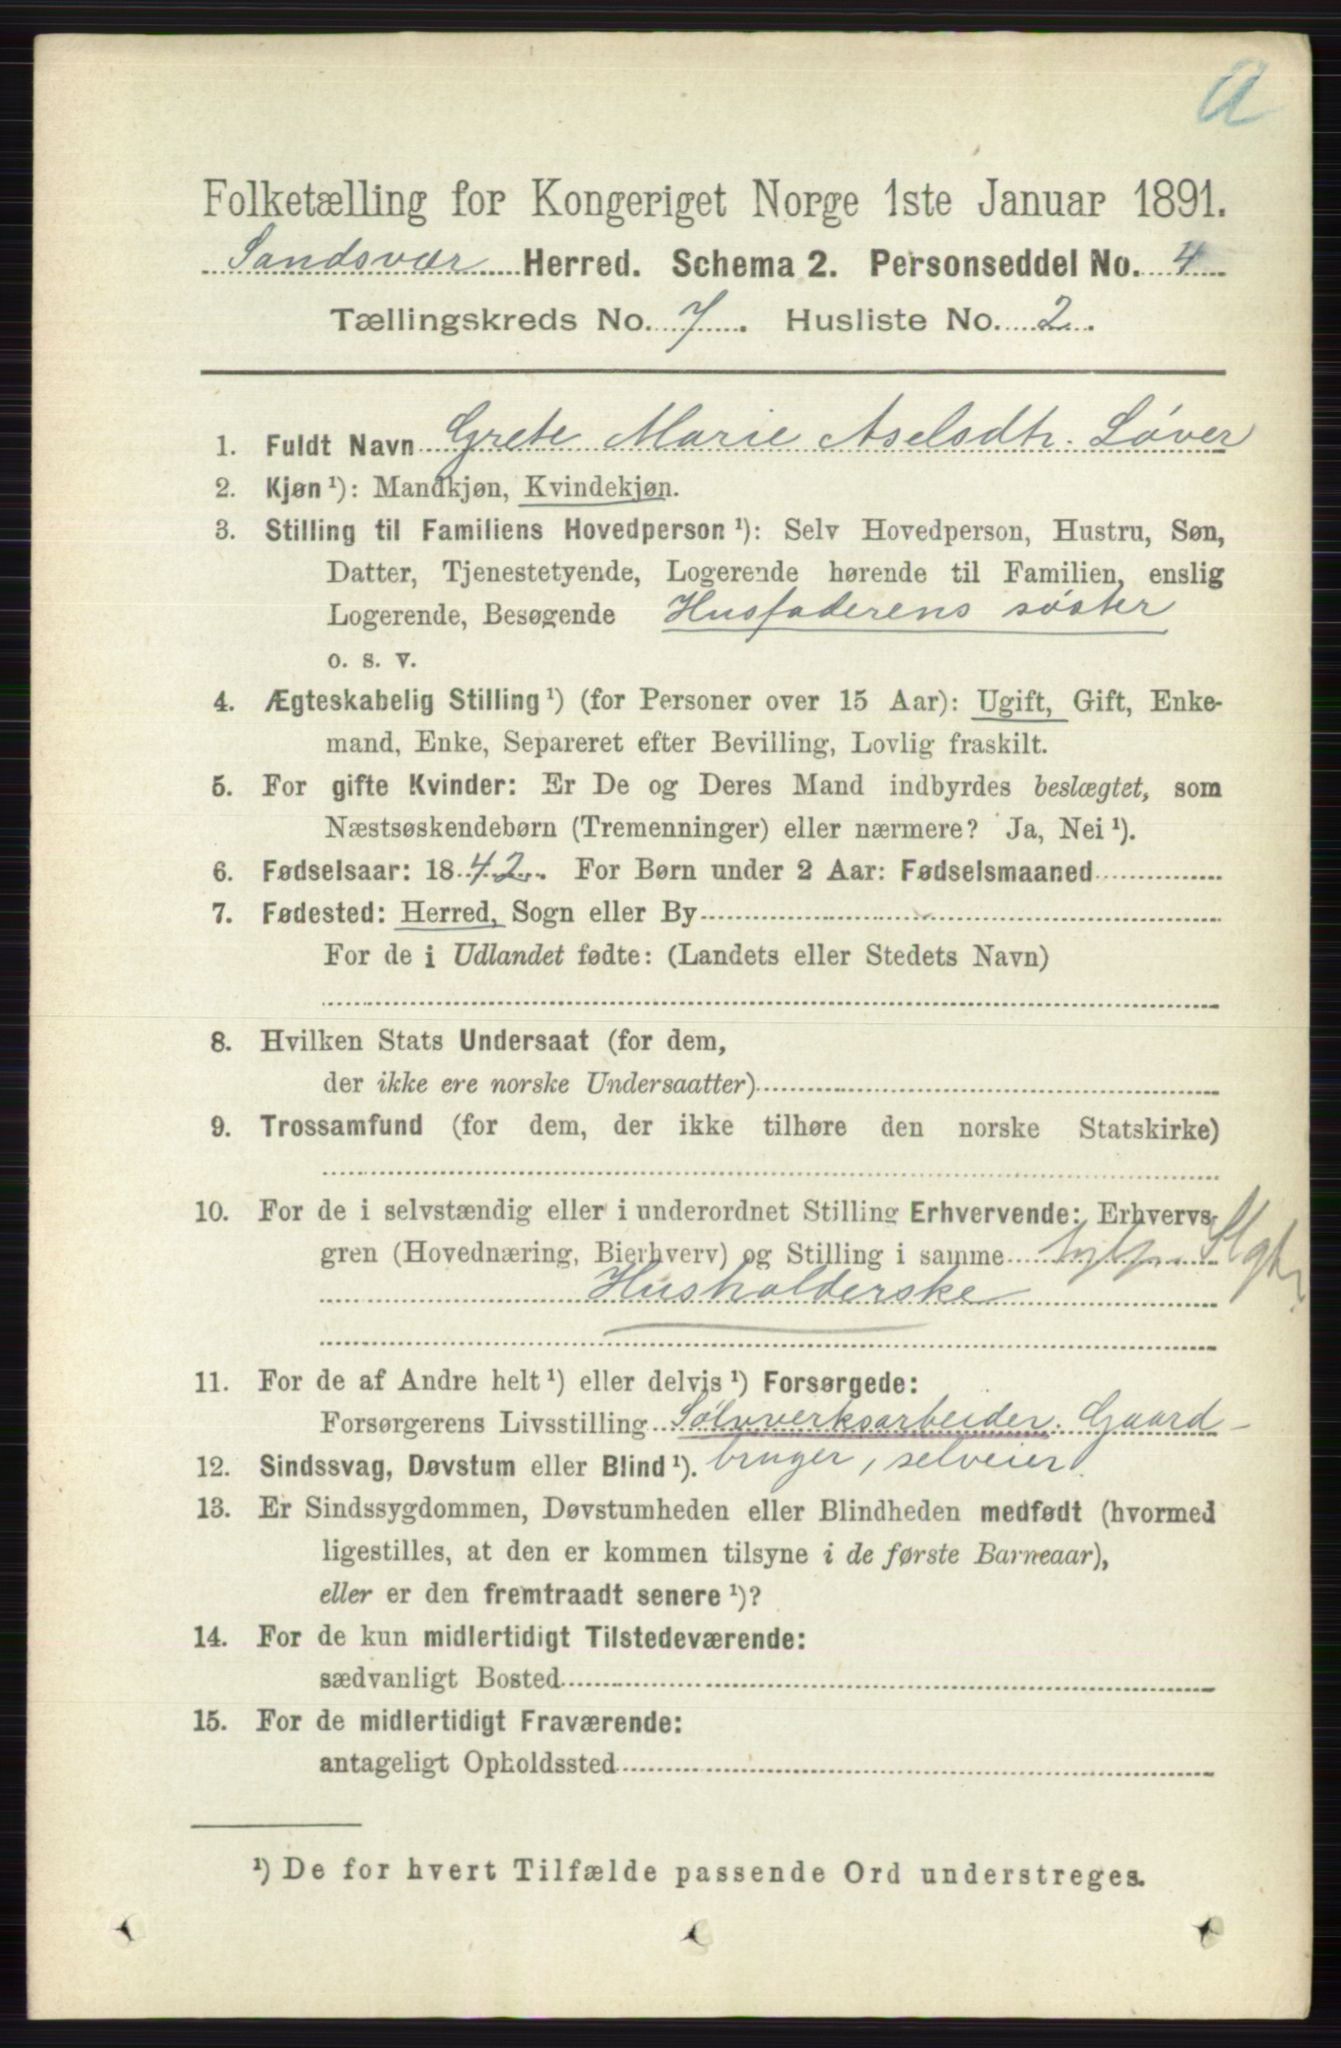 a
Folketælling for Kongeriget Norge 1ste Januar 1891.
Sandsvær Herred. Schema 2. Personseddel No. 4
Tællingskreds No. 7. Husliste No. 2.
1. Fuldt Navn Grete Marie Aselsdtr. Søver
2. Kjøn ¹): Mandkjøn, Kvindekjøn.
3. Stilling til Familiens Hovedperson ¹): Selv Hovedperson, Hustru, Søn,
Datter, Tjenestetyende, Logerende hørende til Familien, enslig
Logerende, Besøgende Husfaderens søster
o. s. v.
4. Ægteskabelig Stilling ¹) (for Personer over 15 Aar): Ugift, Gift, Enke-
mand, Enke, Separeret efter Bevilling, Lovlig fraskilt.
5. For gifte Kvinder: Er De og Deres Mand indbyrdes beslægtet, som
Næstsøskendebørn (Tremenninger) eller nærmere? Ja, Nei ¹).
6. Fødselsaar: 1842. For Børn under 2 Aar: Fødselsmaaned
7. Fødested: Herred, Sogn eller By
For de i Udlandet fødte: (Landets eller Stedets Navn)
8. Hvilken Stats Undersaat (for dem,
der ikke ere norske Undersaatter)
9. Trossamfund (for dem, der ikke tilhøre den norske Statskirke)
10. For de i selvstændig eller i underordnet Stilling Erhvervende: Erhvervs-
gren (Hovednæring, Bierhverv) og Stilling i samme
Husholderske
11. For de af Andre helt ¹) eller delvis ¹) Forsørgede:
Forsørgerens Livsstilling Sølvverksarbeider. Gaard-
12. Sindssvag, Døvstum eller Blind ¹). bruger, selveier.
13. Er Sindssygdommen, Døvstumheden eller Blindheden medfødt (hvormed
ligestilles, at den er kommen tilsyne i de første Barneaar),
eller er den fremtraadt senere ¹)?
14. For de kun midlertidigt Tilstedeværende:
sædvanligt Bosted
15. For de midlertidigt Fraværende:
antageligt Opholdssted
¹) De for hvert Tilfælde passende Ord understreges.